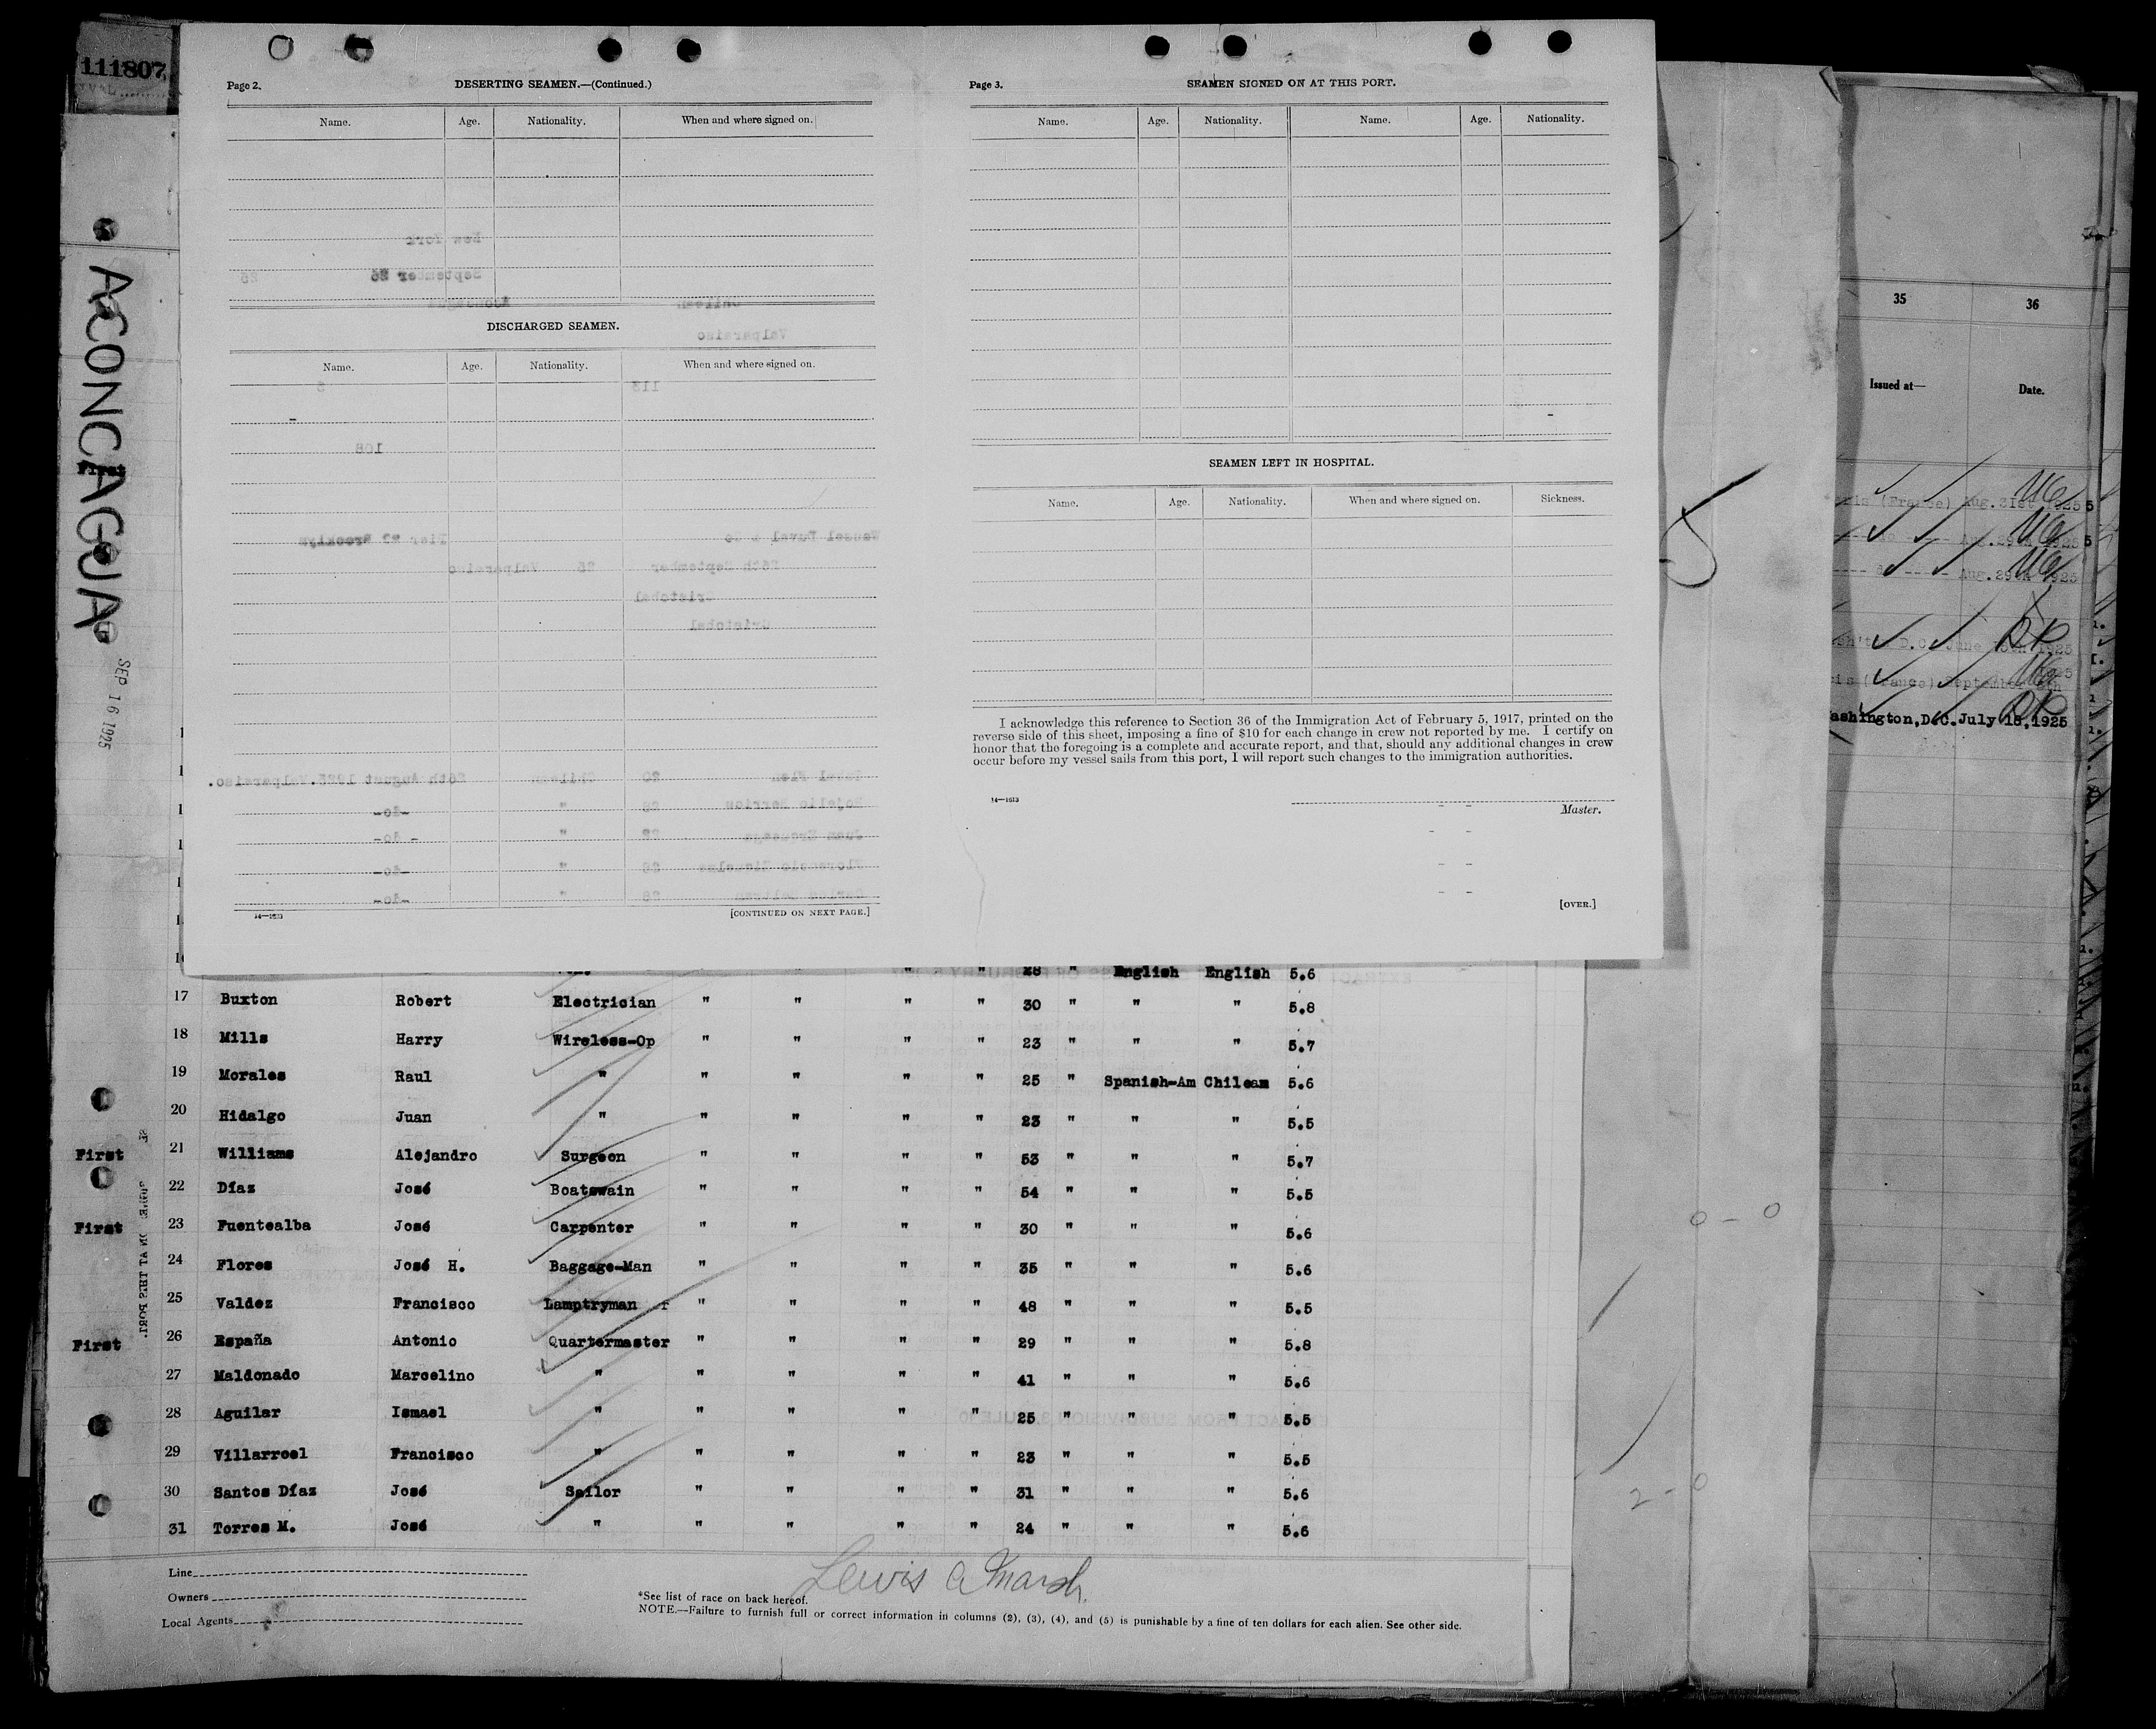 111807
ACONCAGUA
SEP 16 1925
Page 2.
DESERTING SEAMEN.—(Continued.)
Name. Age. Nationality. When and where signed on.
DISCHARGED SEAMEN.
Name. Age. Nationality. When and where signed on.
14—1613
[CONTINUED ON NEXT PAGE.]
Page 3.
SEAMEN SIGNED ON AT THIS PORT.
Name. Age. Nationality. Name. Age. Nationality.
SEAMEN LEFT IN HOSPITAL.
Name. Age. Nationality. When and where signed on. Sickness.
I acknowledge this reference to Section 36 of the Immigration Act of February 5, 1917, printed on the
reverse side of this sheet, imposing a fine of $10 for each change in crew not reported by me. I certify on
honor that the foregoing is a complete and accurate report, and that, should any additional changes in crew
occur before my vessel sails from this port, I will report such changes to the immigration authorities.
14—1613
Master.
[OVER.]
35 36
Issued at— Date.
(France) Aug. 31st 1925
Aug. 29th 1925
Aug. 29th 1925
D.C. June 1925
(France) September
Washington, D.C. July 15, 1925
First
28 " English English 5.6
17 Buxton Robert Electrician " " " " 30 " " " 5.8
18 Mills Harry Wireless-Op " " " " 23 " " " 5.7
19 Morales Raul " " " " " 25 " Spanish-Am Chilean 5.6
20 Hidalgo Juan " " " " " 23 " " " 5.5
First 21 Williams Alejandro Surgeon " " " " 53 " " " 5.7
22 Díaz José Boatswain " " " " 54 " " " 5.5
First 23 Fuentealba José Carpenter " " " " 30 " " " 5.6
24 Flores José H. Baggage-Man " " " " 35 " " " 5.6
25 Valdez Francisco Lamptryman " " " " 48 " " " 5.5
First 26 España Antonio Quartermaster " " " " 29 " " " 5.8
27 Maldonado Marcelino " " " " " 41 " " " 5.6
28 Aguilar Ismael " " " " " 25 " " " 5.5
29 Villarroel Francisco " " " " " 23 " " " 5.5
30 Santos Díaz José Sailor " " " " 31 " " " 5.6
31 Torres M. José " " " " " 24 " " " 5.6
Line
Owners
Local Agents
Lewis A Marsh.
*See list of race on back hereof.
NOTE.—Failure to furnish full or correct information in columns (2), (3), (4), and (5) is punishable by a fine of ten dollars for each alien. See other side.